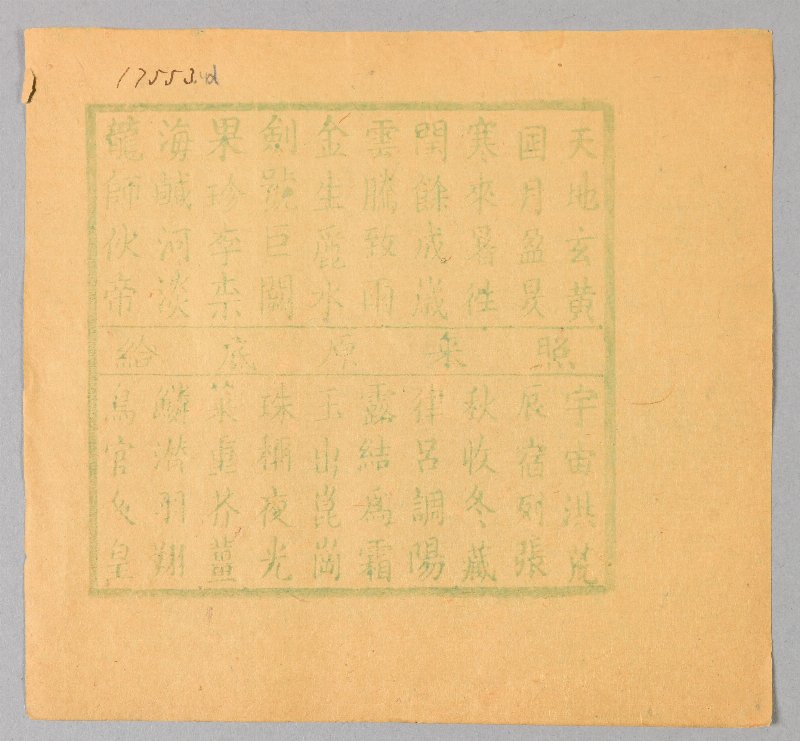 17553.d
天地玄黃
月盈昃
寒來暑徃
閏餘成歲
雲騰致雨
金生麗水
劍號巨闕
果珍李柰
海鹹河淡
龍師伙帝
照 采 原 底 給
宇宙洪荒
辰宿列張
秋收冬藏
律呂調陽
露結爲霜
玉出崑崗
珠稱夜光
菜重芥薑
鱗潛羽翔
鳥官 皇